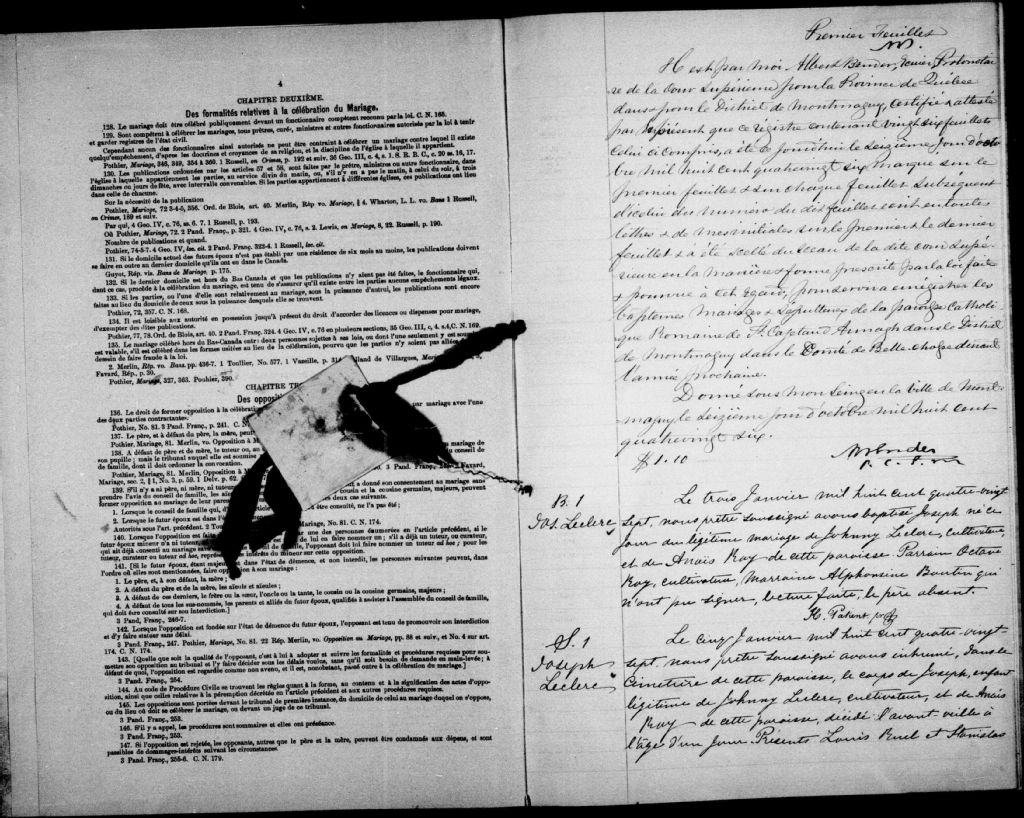 4
CHAPITRE DEUXIÈME.
Des formalités relatives à la célébration du Mariage.
128. Le mariage doit être célébré publiquement devant un fonctionnaire compétent reconnu par la loi. C. N. 165.
129. Sont compétents à célébrer les mariages, tous prêtres, curés, ministres et autres fonctionnaires autorisés par la loi à tenir
et garder registres de l'état civil.
Cependant aucun des fonctionnaires ainsi autorisés ne peut être contraint à célébrer un mariage contre lequel il existe
quelqu'empêchement, d'après les doctrines et croyances de sa religion, et la discipline de l'église à laquelle il appartient.
Pothier, Mariage, 346, 349, 354 à 360. 1 Russell, on Crimes, p. 192 et suiv. 36 Geo. III, c. 4, s. 1. S. R. B. C., c. 20 ss. 16, 17.
130. Les publications ordonnées par les articles 57 et 58, sont faites par le prêtre, ministre ou autre fonctionnaire, dans
l'église à laquelle appartiennent les parties, au service divin du matin, ou, s'il n'y en a pas le matin, à celui du soir, à trois
dimanches ou jours de fête, avec intervalle convenables. Si les parties appartiennent à différentes églises, ces publications ont lieu
dans celle de chacune.
Sur la nécessité de la publication
Pothier, Mariage, 72 3-4-5, 356. Ord. de Blois, art. 40. Merlin, Rép vo. Mariage, § 4. Wharton, L. L. vo. Bans 1 Russell,
on Crimes, 189 et suiv.
Par qui, 4 Geo. IV, c. 76, ss. 6. 7. 1 Russell, p. 193.
Où Pothier, Mariage, 72. 2 Pand. Franç., p. 321. 4 Geo. IV, c. 76, s. 2. Lewis, on Mariage, 8, 22. Russell, p. 190.
Nombre de publications et quand.
Pothier, 74-5-7. 4 Geo. IV, loc. cit. 2 Pand. Franç. 322-4. 1 Russell, loc. cit.
131. Si le domicile actuel des futurs époux n'est pas établi par une résidence de six mois au moins, les publications doivent
se faire en outre au dernier domicile qu'ils ont eu dans le Canada.
Guyot, Rép. vis. Bans de Mariage. p. 175.
132. Si le dernier domicile est hors du Bas Canada et que les publications n'y aient pas été faites, le fonctionnaire qui,
dant ce cas, procède à la célébration du mariage, est tenu de s'assurer qu'il existe entre les parties aucuns empêchements légaux.
133. Si les parties, ou l'une d'elle sont relativement au mariage, sous la puissance d'autrui, les publications sont encore
faites au lieu du domicile de ceux sous la puissance desquels elle se trouvent.
Pothier, 72, 357. C. N. 168.
134. Il est loisible aux autorité en possession jusqu'à présent du droit d'accorder des licences ou dispenses pour mariage,
d'exempter des dites publications.
Pothier, 77, 78. Ord. de Blois, art. 40. 2 Pand. Franç. 324. 4 Geo. IV, c. 76 en plusieurs sections, 35 Geo. III, c, 4. s.4, C. N. 169.
135. Le mariage célébré hors du Bas-Canada entre deux personnes sujettes à ses lois, ou dont l'une seulement y est
est valable, s'il est célébré dans les formes usitées au lieu de la célébration, pourvu que les parties n'y soient pas allées
dessein de faire fraude à la loi.
2. Merlin, Rép. vo. Bans. pp. 436-7. 1 Toullier, No. 577. 1 Vazeille, p.
Favard, Rép., p. 30.
Pothier, Mariage, 327, 363. Pouhier, 390.
CHAPITRE
Des
136. Le droit de former opposition à la célébra par mariage avec l'une
des deux parties contractantes.
Pothier, No. 81. 3 Pand. Franç., p. 241. C.
137. Le père, et à défaut du père, la mère,
Pothier, Mariage, 81. Merlin, vo. Opposition à
138. A défaut de père et de mère, le tuteur ou, au mariage de
son pupille; mais le tribunal auquel elle est soumise conseil de
famille, dont il doit ordonner la convocation.
Pothier, Mariage, 81. Merlin, Opposition à 3 Pand. Franç., Favard,
Mariage, sec. 2, § 1, No. 3, p. 59. 1 Delv. p. 62.
139. S'il n'y a ni père, ni mère, ni a donné son consentement au mariage sans
prendre l'avis du conseil de famille, les cousin et la cousine germains, majeurs, peuvent
former opposition au mariage de leur parent deux cas suivants.
1. Lorsque le conseil de famille qui, être consulté, ne l'a pas été;
2. Lorsque le futur époux est dans
Autorités sous l'art. précédent. Mariage, No. 81. C. N. 174.
140. Lorsque l'opposition est une des personnes énumérées en l'article précédent, si le
futur époux mineur n'a ni de lui en faire nommer un; s'il a déjà un tuteur, ou curateur,
qui ait déjà consenti au mariage l'opposant doit lui faire nommer un tuteur ad hoc; pour les
intérêt du mineur sur cette opposition.
141. [Si le futur époux, étant majeur dans l'état de démence, et non interdit, les personnes suivantes peuvent, dans
l'ordre où elles sont mentionnées, faire opposition à son mariage:
1. Le père, et, à son défaut, la mère;
2. A défaut du père et de la mère, les aïeuls et aïeules;
3. A défaut de ces derniers, le frère ou la sœur, l'oncle ou la tante, le cousin ou la cousine germains, majeurs;
4. A défaut de tous les sus-nommés, les parents et alliés du futur époux, qualifiés à assister à l'assemblée du conseil de famille,
qui doit être consulté sur son interdiction.]
3 Pand, Franç., 246-7.
142. Lorsque l'opposition est fondée sur l'état de démence du futur époux, l'opposant est tenu de promouvoir son interdiction
et d'y faire statuer sans délai.
3 Pand. Franç., 247. Pothier, Mariage, No. 81. 22 Rép. Merlin, vo. Opposition au Mariage, pp. 88 et suiv., et No. 4 sur art.
174. C. N. 174.
143. [Quelle que soit la qualité de l'opposant, c'est à lui à adopter et suivre les formalités et procédures requises pour sou-
mettre son opposition au tribunal et l'y faire décider sous les délais voulus, sans qu'il soit besoin de demande en main-levée; à
défaut de quoi, l'opposition est regardée comme non avenue, et il est, nonobstant, passé outre à la célébration du mariage.]
3 Pand. Franç., 254.
144. Au code de Procédure Civile se trouvent les règles quant à la forme, au contenu et à la signification des actes d'oppo-
sition, ainsi que celles relatives à la péremption décrétée en l'article précédent et aux autres procédures requises.
145. Les oppositions sont portées devant le tribunal de première instance, du domicile de celui au mariage duquel on s'oppose,
ou du lieu où doit se célébrer le mariage, ou devant un juge de ce tribunal.
3 Pand. Franç., 253.
146. S'il y a appel, les procédures sont sommaires et elles ont préséance.
3 Pand. Franç., 253.
147. Si l'opposition est rejetée, les opposants, autres que le père et la mère, peuvent être condamnés aux dépens, et sont
passibles de dommages-intérêts suivant les circonstances.
3 Pand. Franç., 255-6. C. N. 179.
Premier Feuillet
Il est par moi Albert Bender, Ecuier, Protonotai
re de la Cour Supérieure pour la Province de Québec
dans & pour le District de Montmagny, certifié & attesté
par le présent que ce régistre contenant vingt six feuillets
celui ci compris, a été ce jourd'hui le seizième jour d'octo
bre mil huit cent quatrevingt six marqué sur le
premier feuillet & sur chaque feuillet subséquent
d'icelui du numéro du dit feuillet écrit en toutes
lettres & de mes initiales sur le premier & le dernier
feuillet & a été scellé du sceau de la dite cour Supé-
rieure en la manière & forme prescrite par la loi faite
& pourvue à cet égard, pour servir à enregistrer les
baptêmes Mariages & Sépultures de la paroisse Catholi
que Romaine de St Cajetan Armagh dans le District
de Montmagny dans le Comté de Bellechasse durant
l'année prochaine.
Donné sous mon seing en la ville de Mont
magny, le seizième jour d'octobre mil huit cent
quatrevingt six.
$1.10
A Bender
P. C. S. M
B. 1
Jos. Leclerc
Le trois Janvier mil huit cent quatre-vingt
sept, nous prêtre soussigné avons baptisé Joseph né ce
jour du légitime mariage de Johnny Leclerc, cultivateur,
et de Anaïs Roy de cette paroisse. Parrain Octave
Roy, cultivateur, Marraine Alphonsine Boutin qui
n'ont pu signer, lecture faite, le père absent.
S. 1
Joseph
Leclerc
Le cinq Janvier mil huit cent quatre-vingt-
sept, nous prêtre soussigné avons inhumé, dans le
Cimetière de cette paroisse, le corps de Joseph, enfant
légitime de Johnny Leclerc, cultivateur, et de Anaïs
Roy de cette paroisse, décédé l'avant veille à
l'âge d'un jour. Présents Louis Ruel et Stanislas